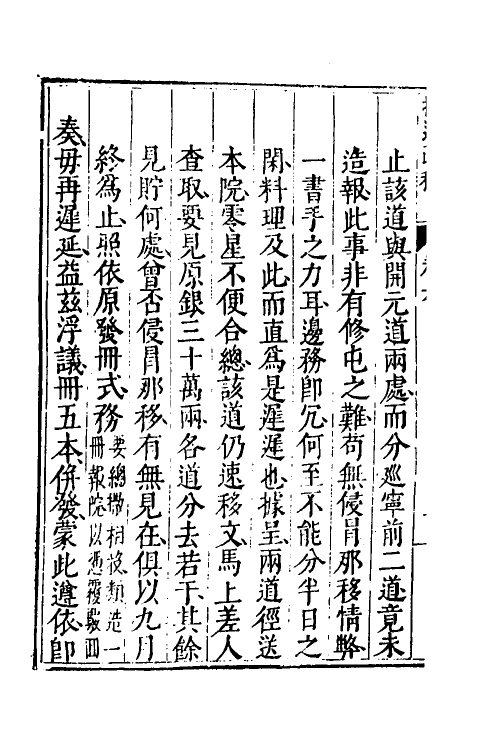 止該道與開元道兩處而分巡寧前二道竟未
造報此事非有修屯之難苟無侵冐那移情弊
一書手之力耳邊務卽冗何至不能分半日之
閑料理及此而直爲是遲遲也據呈兩道徑送
本院零星不便合總該道仍速移文馬上差人
查取要見原銀三十萬兩各道分去若干其餘
見貯何處曾否侵冐那移有無見在俱以九月
終爲止照依原發冊式務要總撒相投類造一冊報院以憑覆驗回
奏毋再遲延益茲浮議冊五本併發蒙此遵依卽